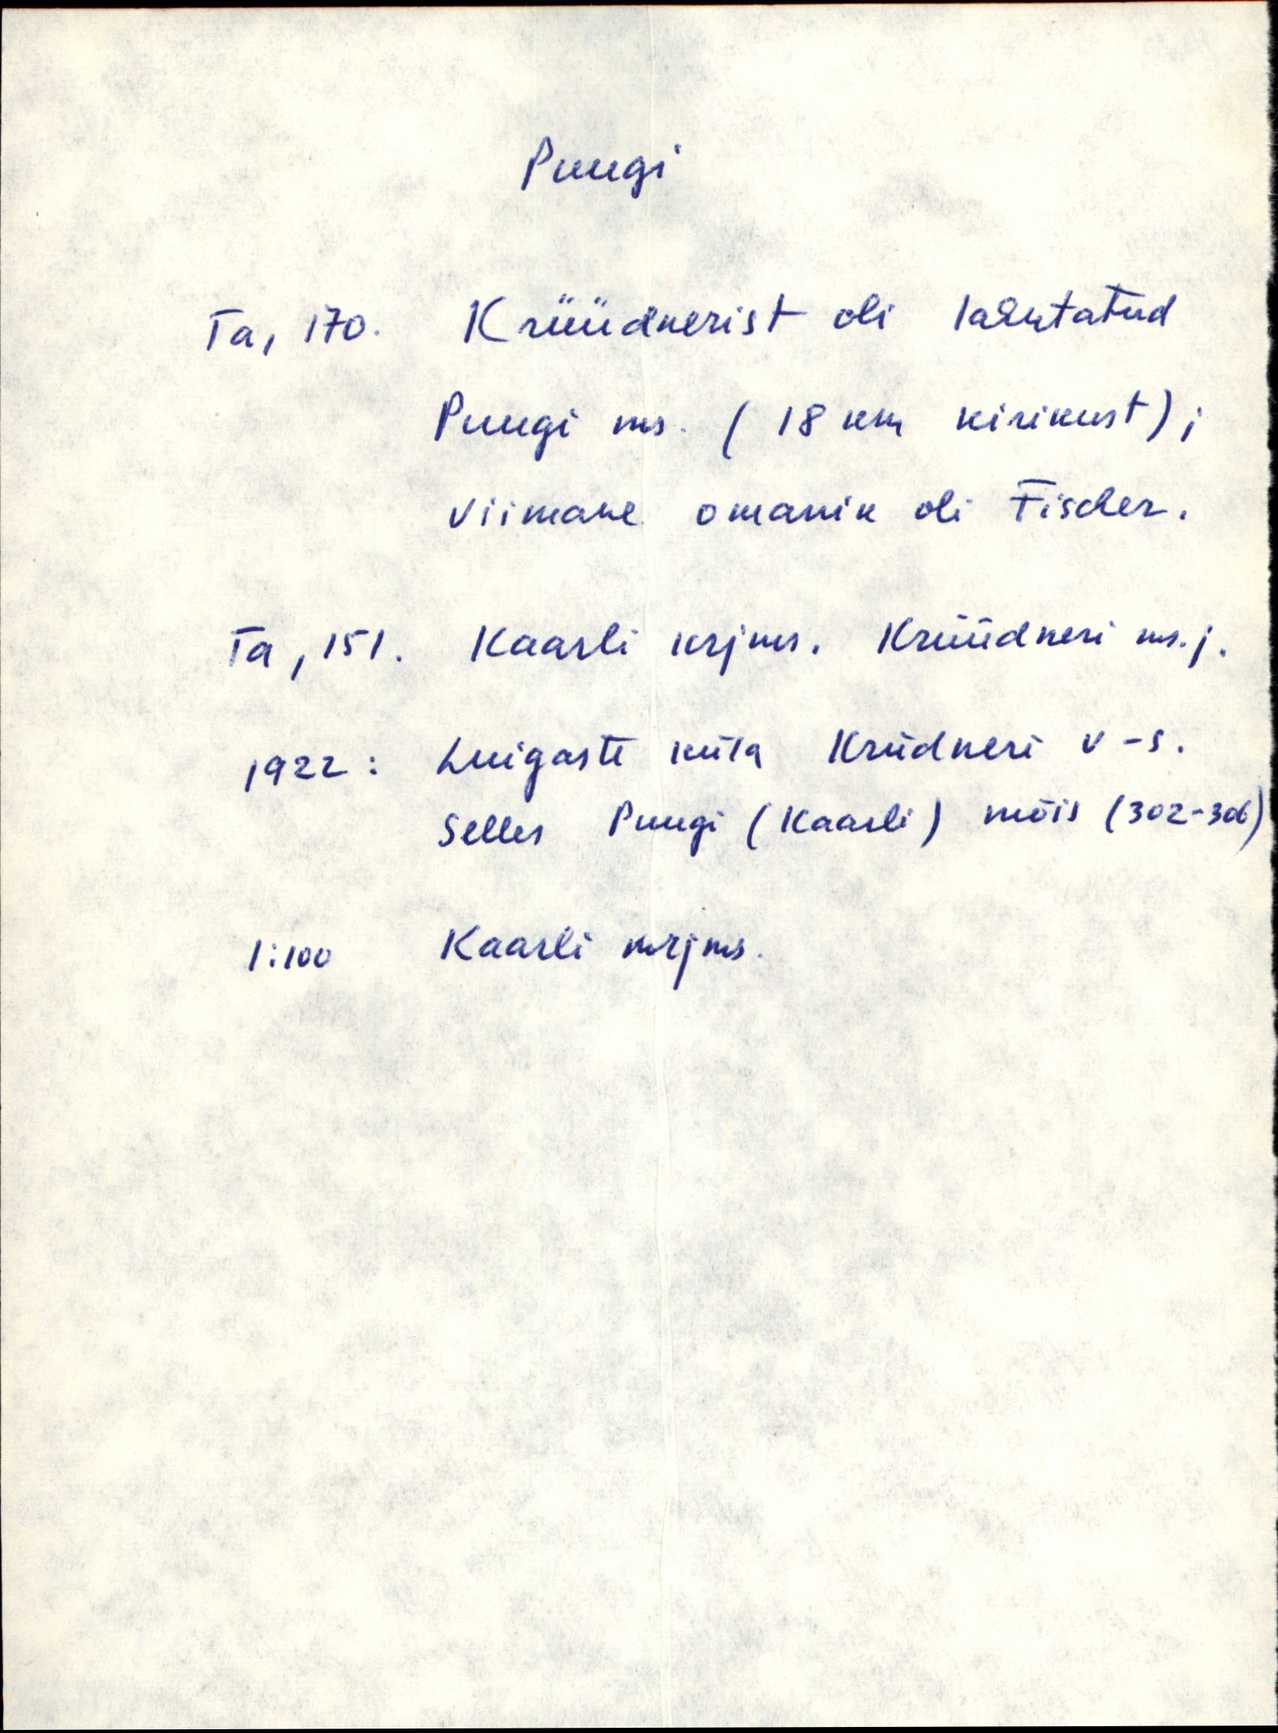 Puugi
Ta, 170. Krüüdnerist oli lahutatud
Puugi ms. (18 km kirikust);
viimane omanik oli Fischer.
Ta, 151. Kaarli krjms. Krüüdneri ms.j.
1922: Luigaste küla Krüdneri v-s.
Selles Puugi (Kaarli) mõis (302-306)
1:100 Kaarli mrjms.